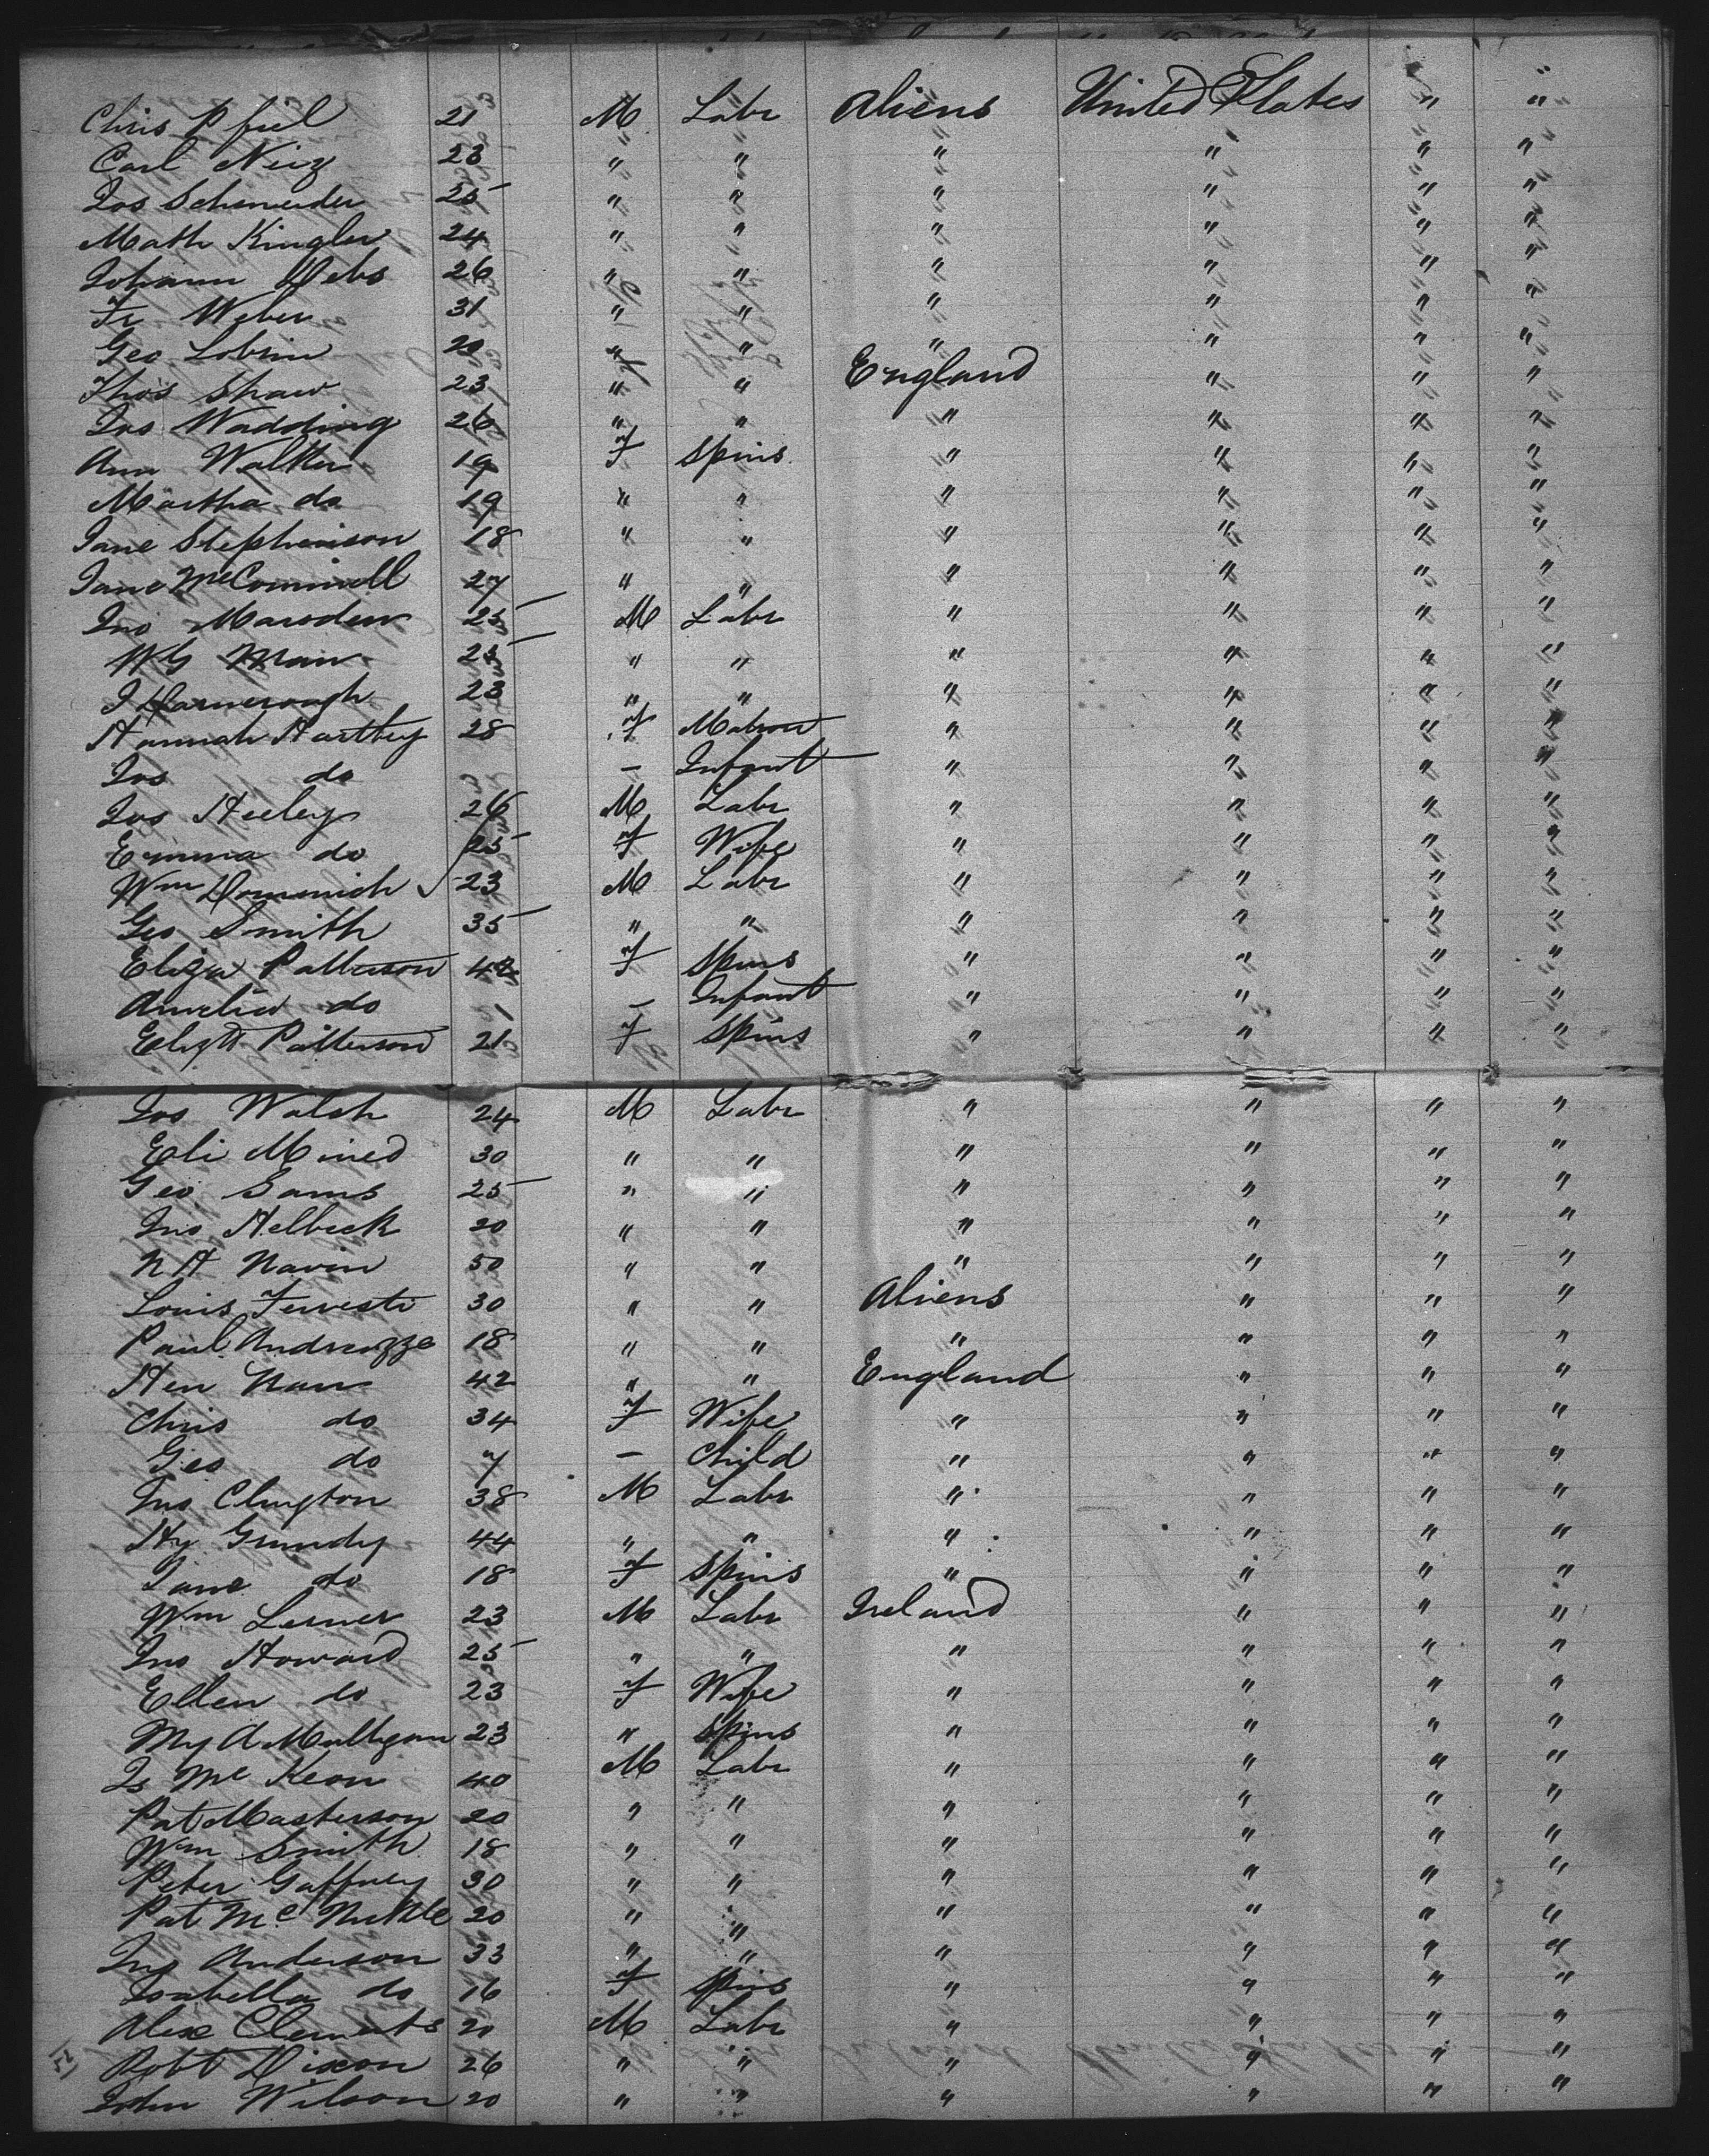 Chris Pfiel 21 M Labr Aliens United States " "
Carl Neiz 23 " " " " " "
Jos Schneider 25 " " " " " "
Math Kingler 24 " " " " " "
Johann Debs 26 " " " " " "
Fr Weber 31 " " " " " "
Geo Lobrin 20 " " " " " "
Thos Shaw 23 " " England " " "
Jos Wadding 26 " " " " " "
Ann Walker 19 F Spins " " " "
Martha do 19 " " " " " "
Jane Stephenson 18 " " " " " "
Jane McConnell 27 " " " " " "
Jno Marsden 25 M Labr " " " "
W G Man 25 " " " " " "
J 23 " " " " " "
Hannah Hartley 28 F Matron " " " "
Jos do - Infant " " " "
Jos Heeley 26 M Labr " " " "
Emma do 25 F Wife " " " "
Wm Domenich 23 M Labr " " " "
Geo Smith 35 " " " " " "
Eliza Patterson 42 F Spins " " " "
Amelia do 1 - Infant " " " "
Elizth Patterson 21 F Spins " " " "
Jos Walsh 24 M Labr " " " "
Eli Mined 30 " " " " " "
Geo Sams 25 " " " " " "
Jno Helbeck 20 " " " " " "
N H Navin 50 " " " " " "
Louis Ferresti 30 " " Aliens " " "
Paul Andreozze 18 " " " " " "
Hen Nan 42 " " England " " "
Chris do 34 F Wife " " " "
Geo do 7 - Child " " " "
Jno Clington 38 M Labr " " " "
Hy Grundy 44 " " " " " "
Jane do 18 F Spins " " " "
Wm Lerner 23 M Labr Ireland " " "
Jno Howard 25 " " " " " "
Ellen do 23 F Wife " " " "
My A Mulligan 23 " Spins " " " "
Js McKeon 40 M Labr " " " "
Pat Masterson 20 " " " " " "
Wm Smith 18 " " " " " "
Peter Gaffney 30 " " " " " "
Pat Mc 20 " " " " " "
Jno Anderson 33 " " " " " "
Isabella do 16 F Spins " " " "
Alex Clements 20 M Labr " " " "
Robt Dixon 26 " " " " " "
John Wilson 20 " " " " " "